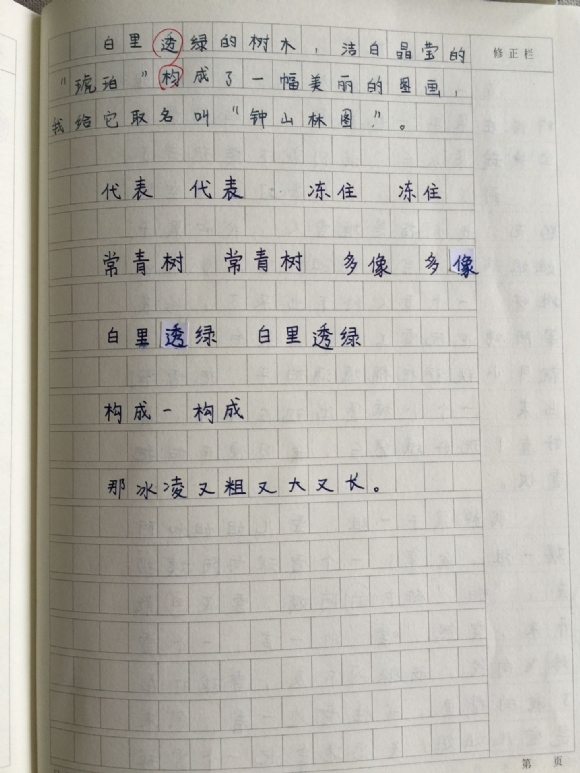 白里透绿的树木，洁白晶莹的
修正栏
“琥珀”构成了一幅美丽的图画，
我给它取名叫“钟山林图”。
代表 代表 冻住 冻住
常青树 常青树 多像 多像
白里透绿 白里透绿
构成一构成
那冰凌又粗又大又长。
第 页